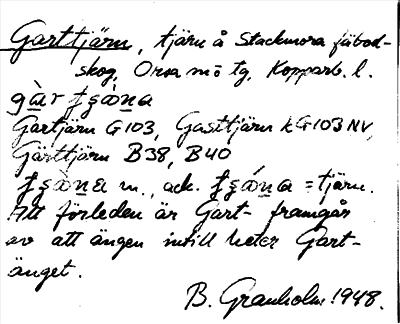 Garttjärn, tjärn å Stackmora fäbod-
skog, Orsa sn o tg, Kopparb. l.
Gartjärn G 103, Gasttjärn kG103 NV,
Gärttjärn B 38, B 40
m., ack. = tjärn.
Att förleden är Gart- framgår
av att ängen intill heter Gart-
änget.
B. Granholm 1948.